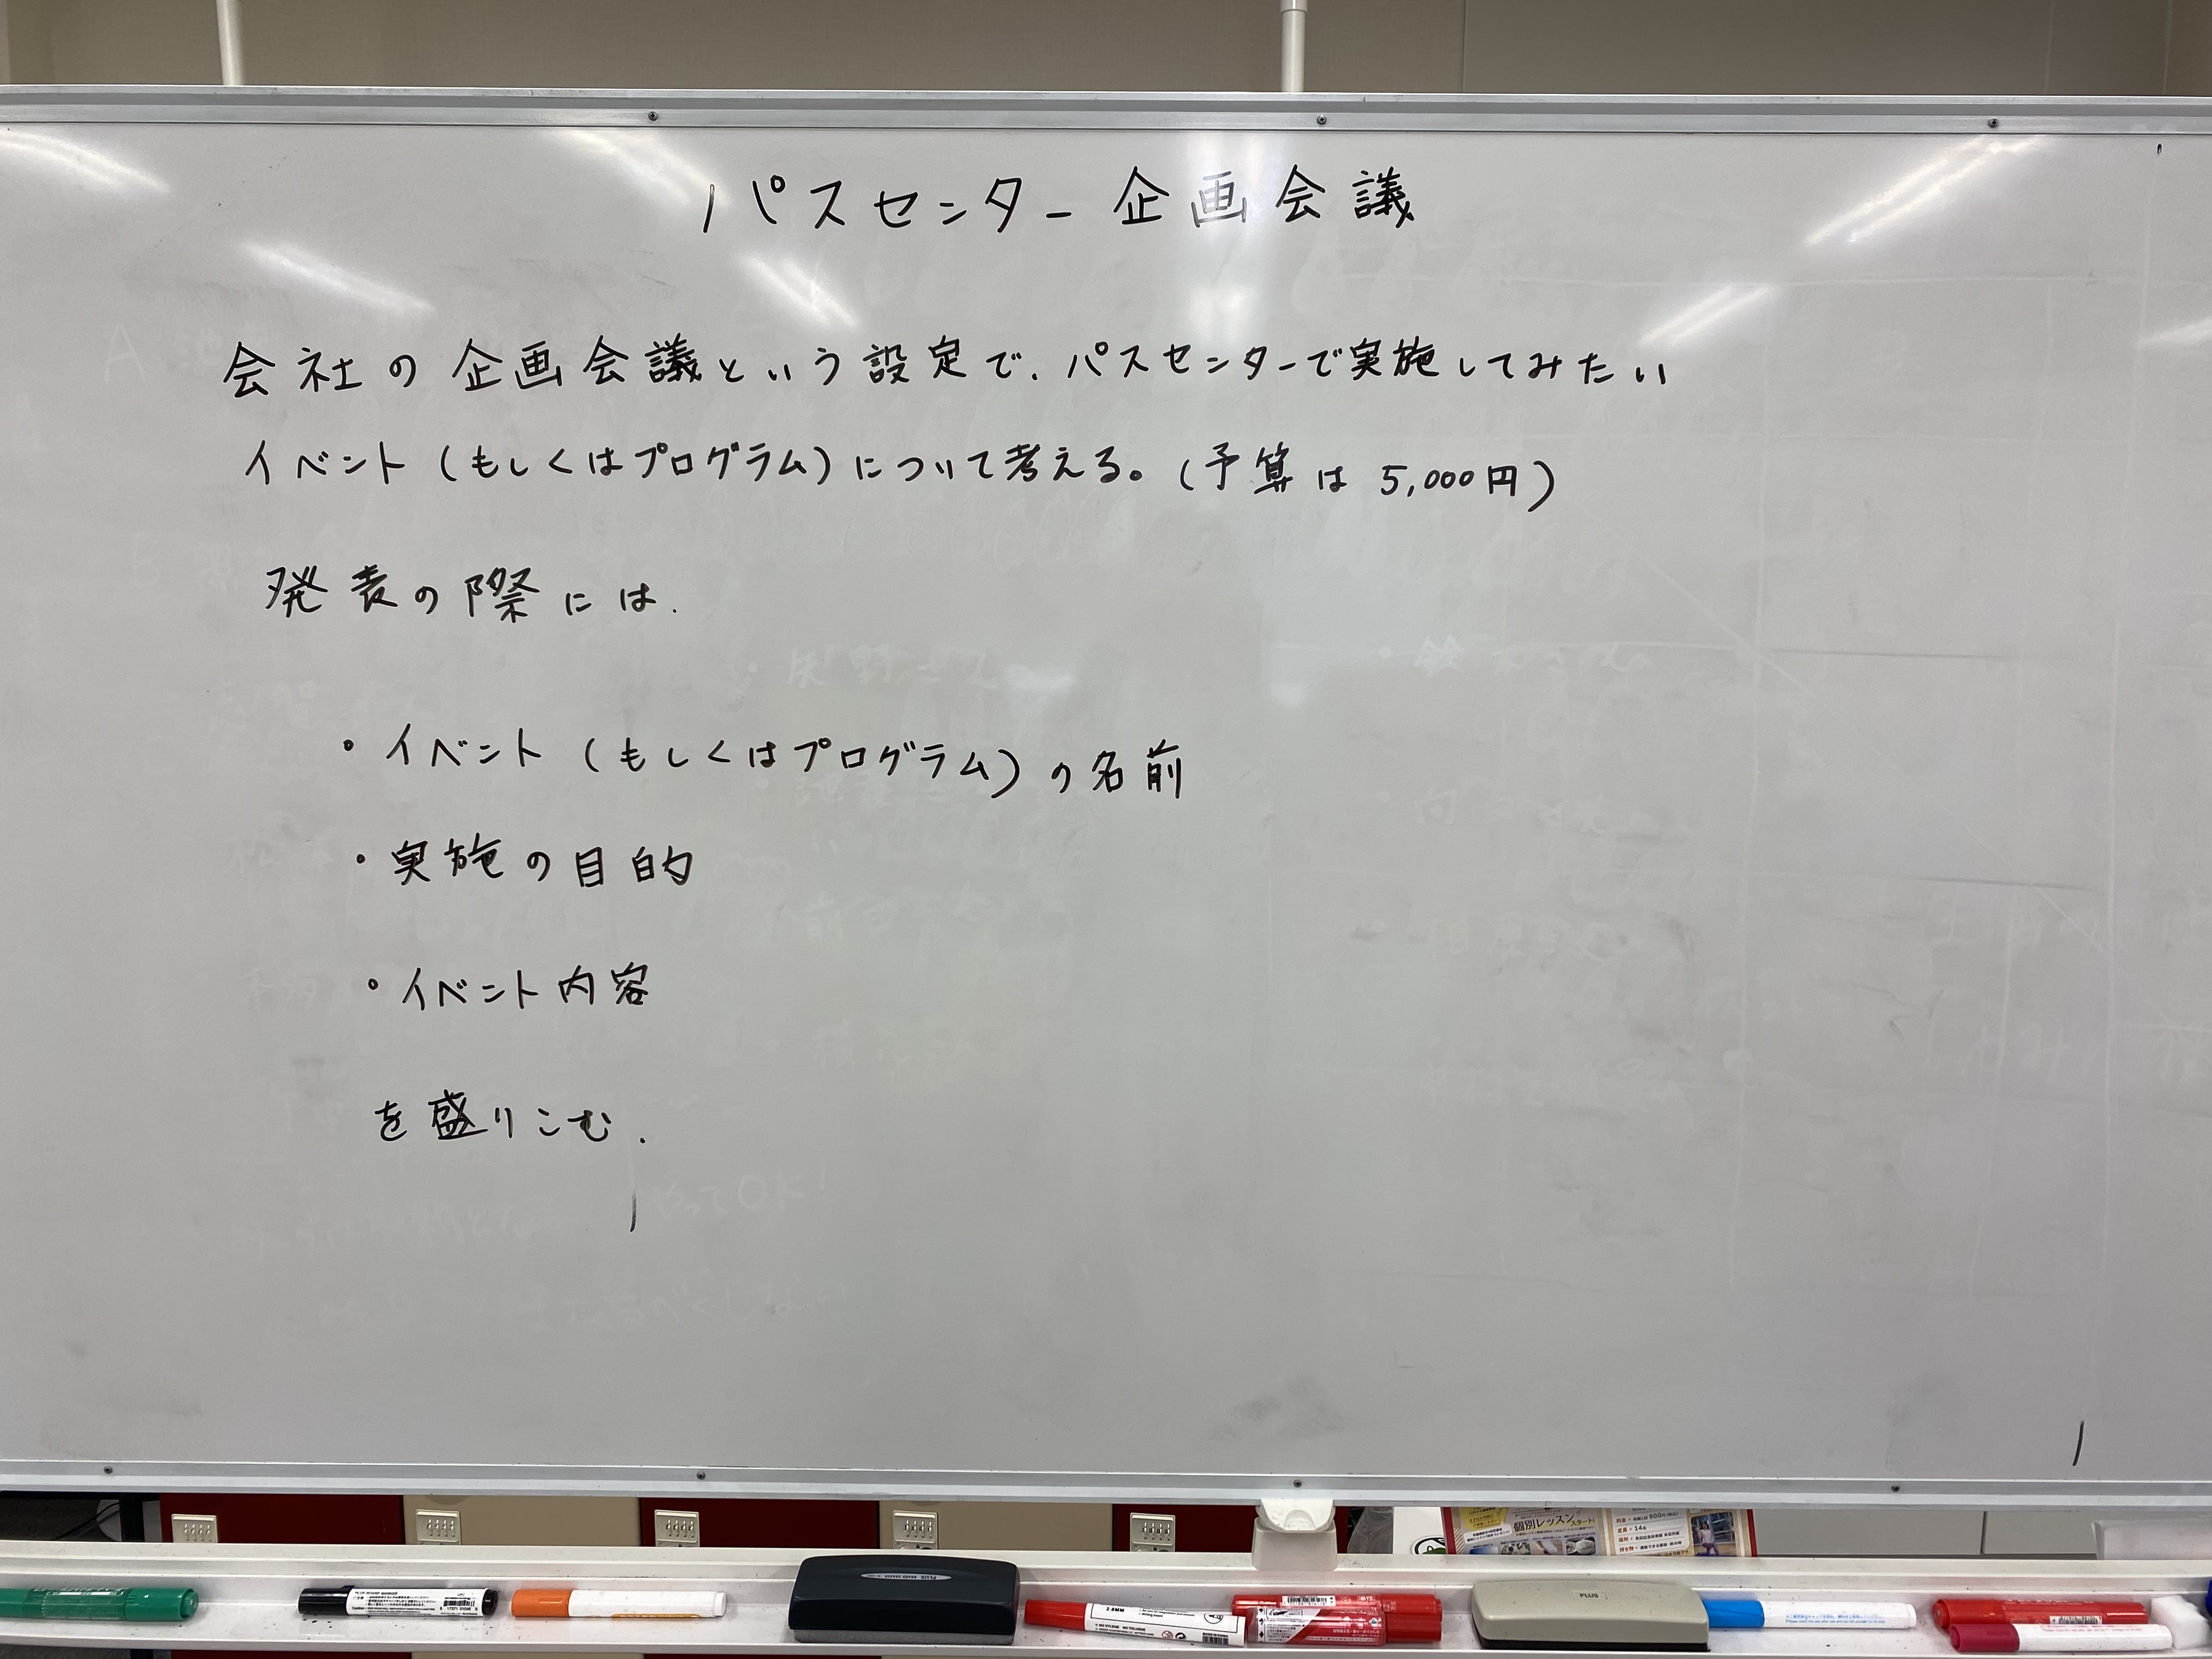 パスセンター企画会議
会社の企画会議という設定で、パスセンターで実施してみたい
イベント(もしくはプログラム)について考える。(予算は 5,000円)
発表の際には、
・イベント(もしくはプログラム)の名前
・実施の目的
・イベント内容
を盛りこむ。
個別レッスン
スタート!
定員・14名
PLUS
PLUS